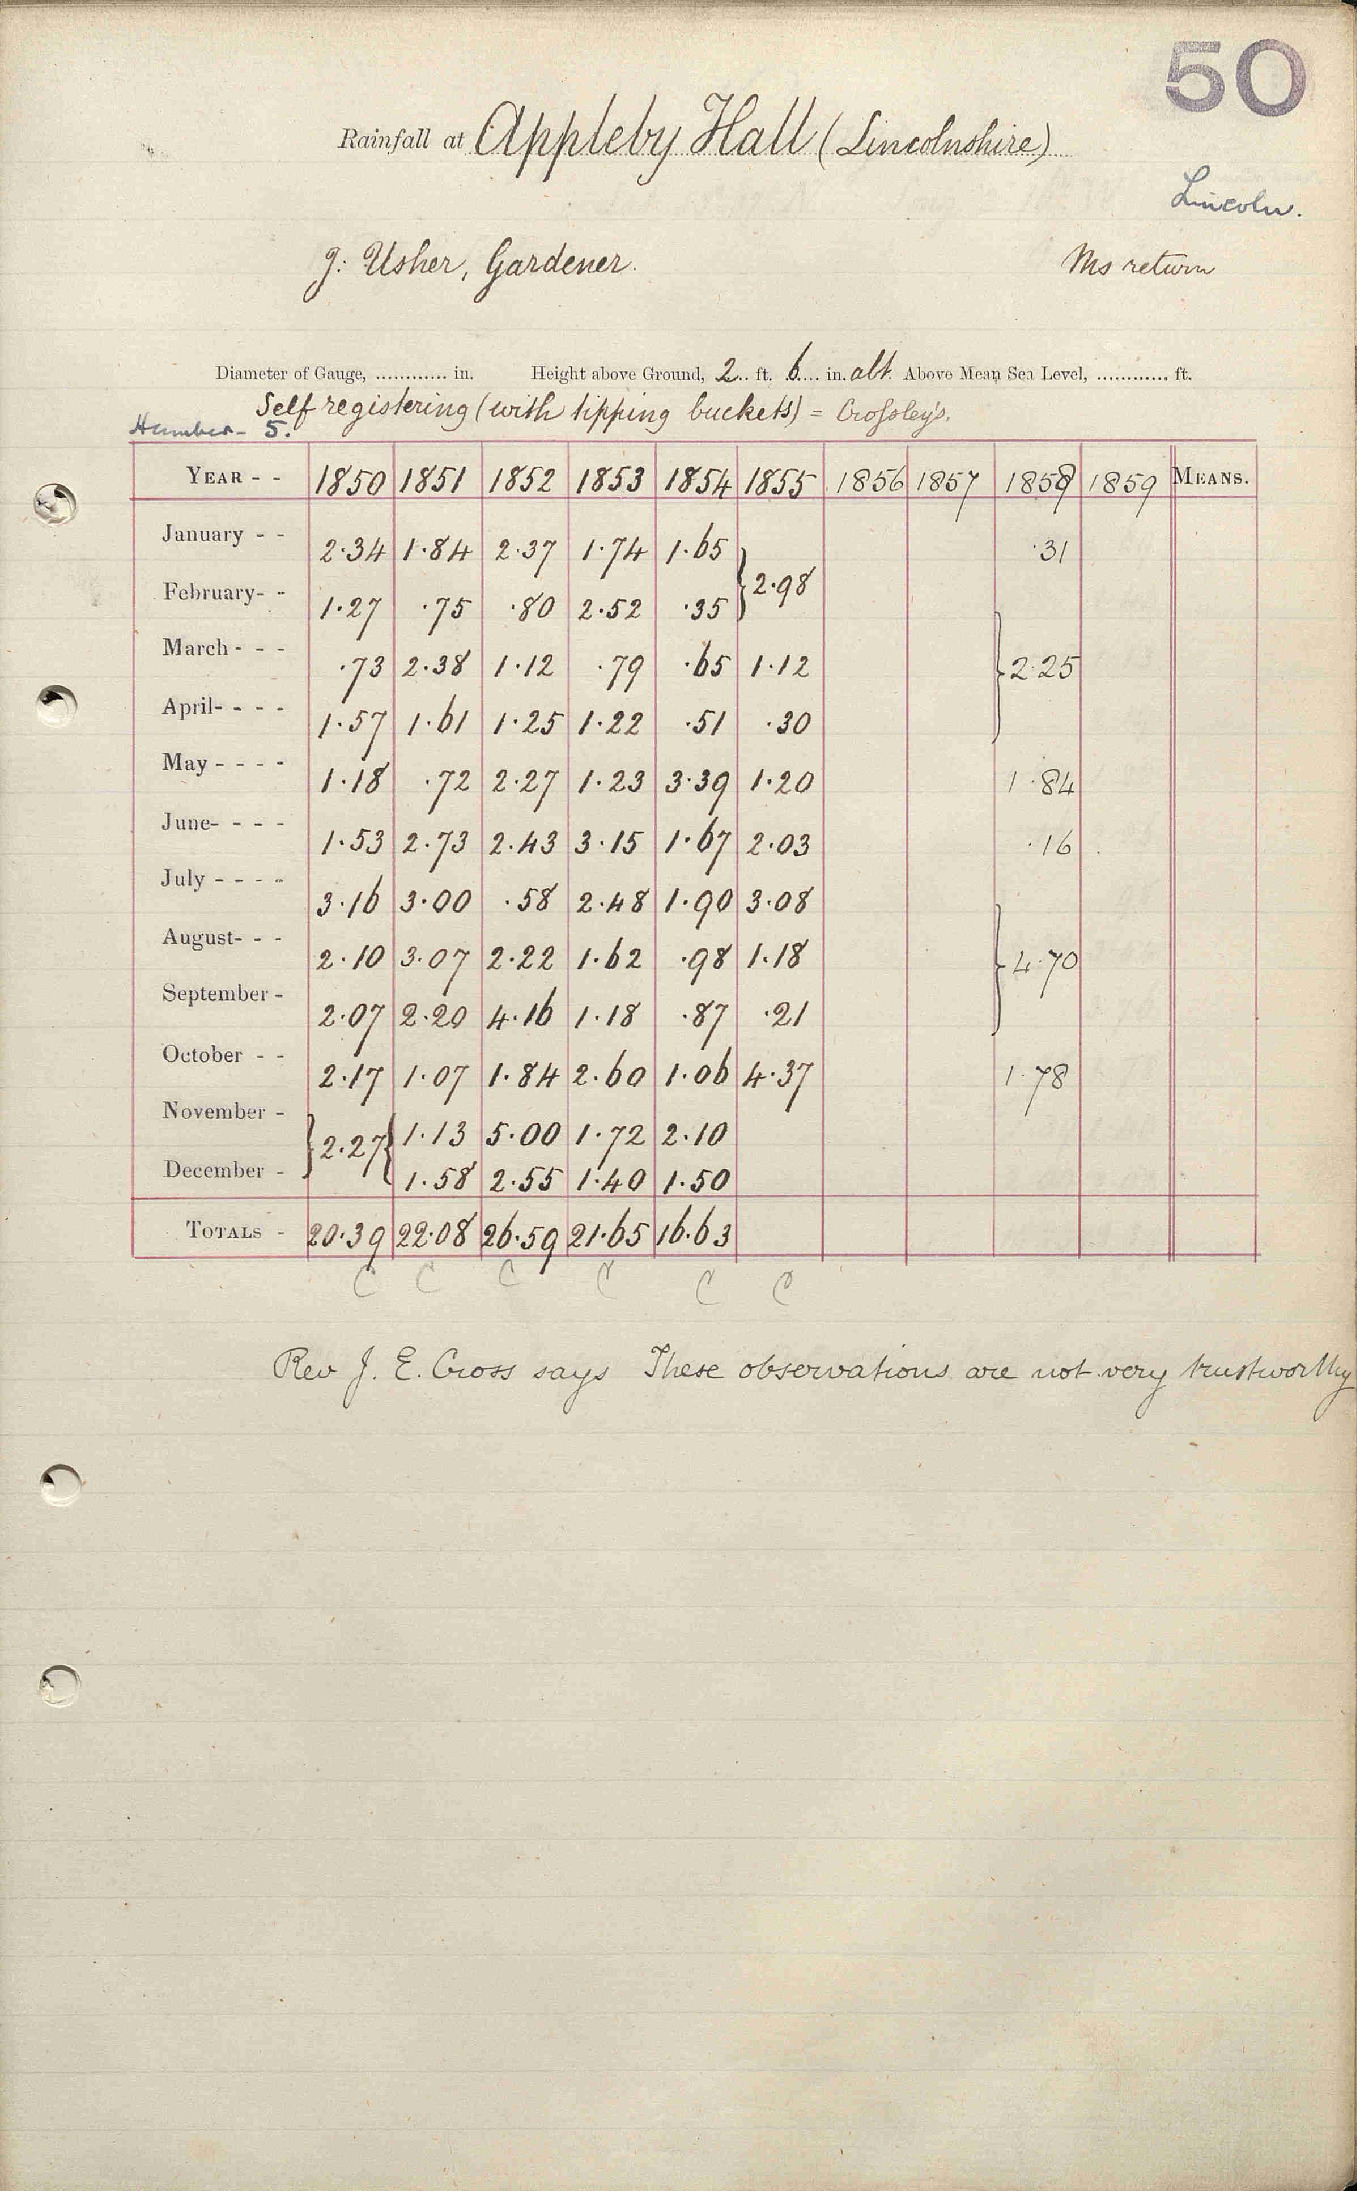 50
Rainfall at Appleby Hall (Lincolnshire)
Lincoln.
J: Usher, Gardener. Ms return
Diameter of Gauge, ............ in. Height above Ground, 2 ft. 6 in. alt. Above Mean Sea Level, ............ ft.
Self registering (with tipping buckets) = Crossley's.
Humber - 5.
YEAR - - 1850 1851 1852 1853 1854 1855 1856 1857 1858 1859 MEANS.
January - - 2.34 1.84 2.37 1.74 1.65 .31
February- - 1.27 .75 .80 2.52 .35 } 2.98
March - - - .73 2.38 1.12 .79 .65 1.12 } 2.25
April- - - - 1.57 1.61 1.25 1.22 .51 .30
May - - - - 1.18 .72 2.27 1.23 3.39 1.20 1.84
June- - - - 1.53 2.73 2.43 3.15 1.67 2.03 .16
July - - - - 3.16 3.00 .58 2.48 1.90 3.08
August- - - 2.10 3.07 2.22 1.62 .98 1.18 } 4.70
September - 2.07 2.20 4.16 1.18 .87 .21
October - - 2.17 1.07 1.84 2.60 1.06 4.37 1.78
November - } 2.27 { 1.13 5.00 1.72 2.10
December - 1.58 2.55 1.40 1.50
TOTALS - 20.39 22.08 26.59 21.65 16.63
C C C C C C
Rev J. E. Cross says These observations are not very trustworthy